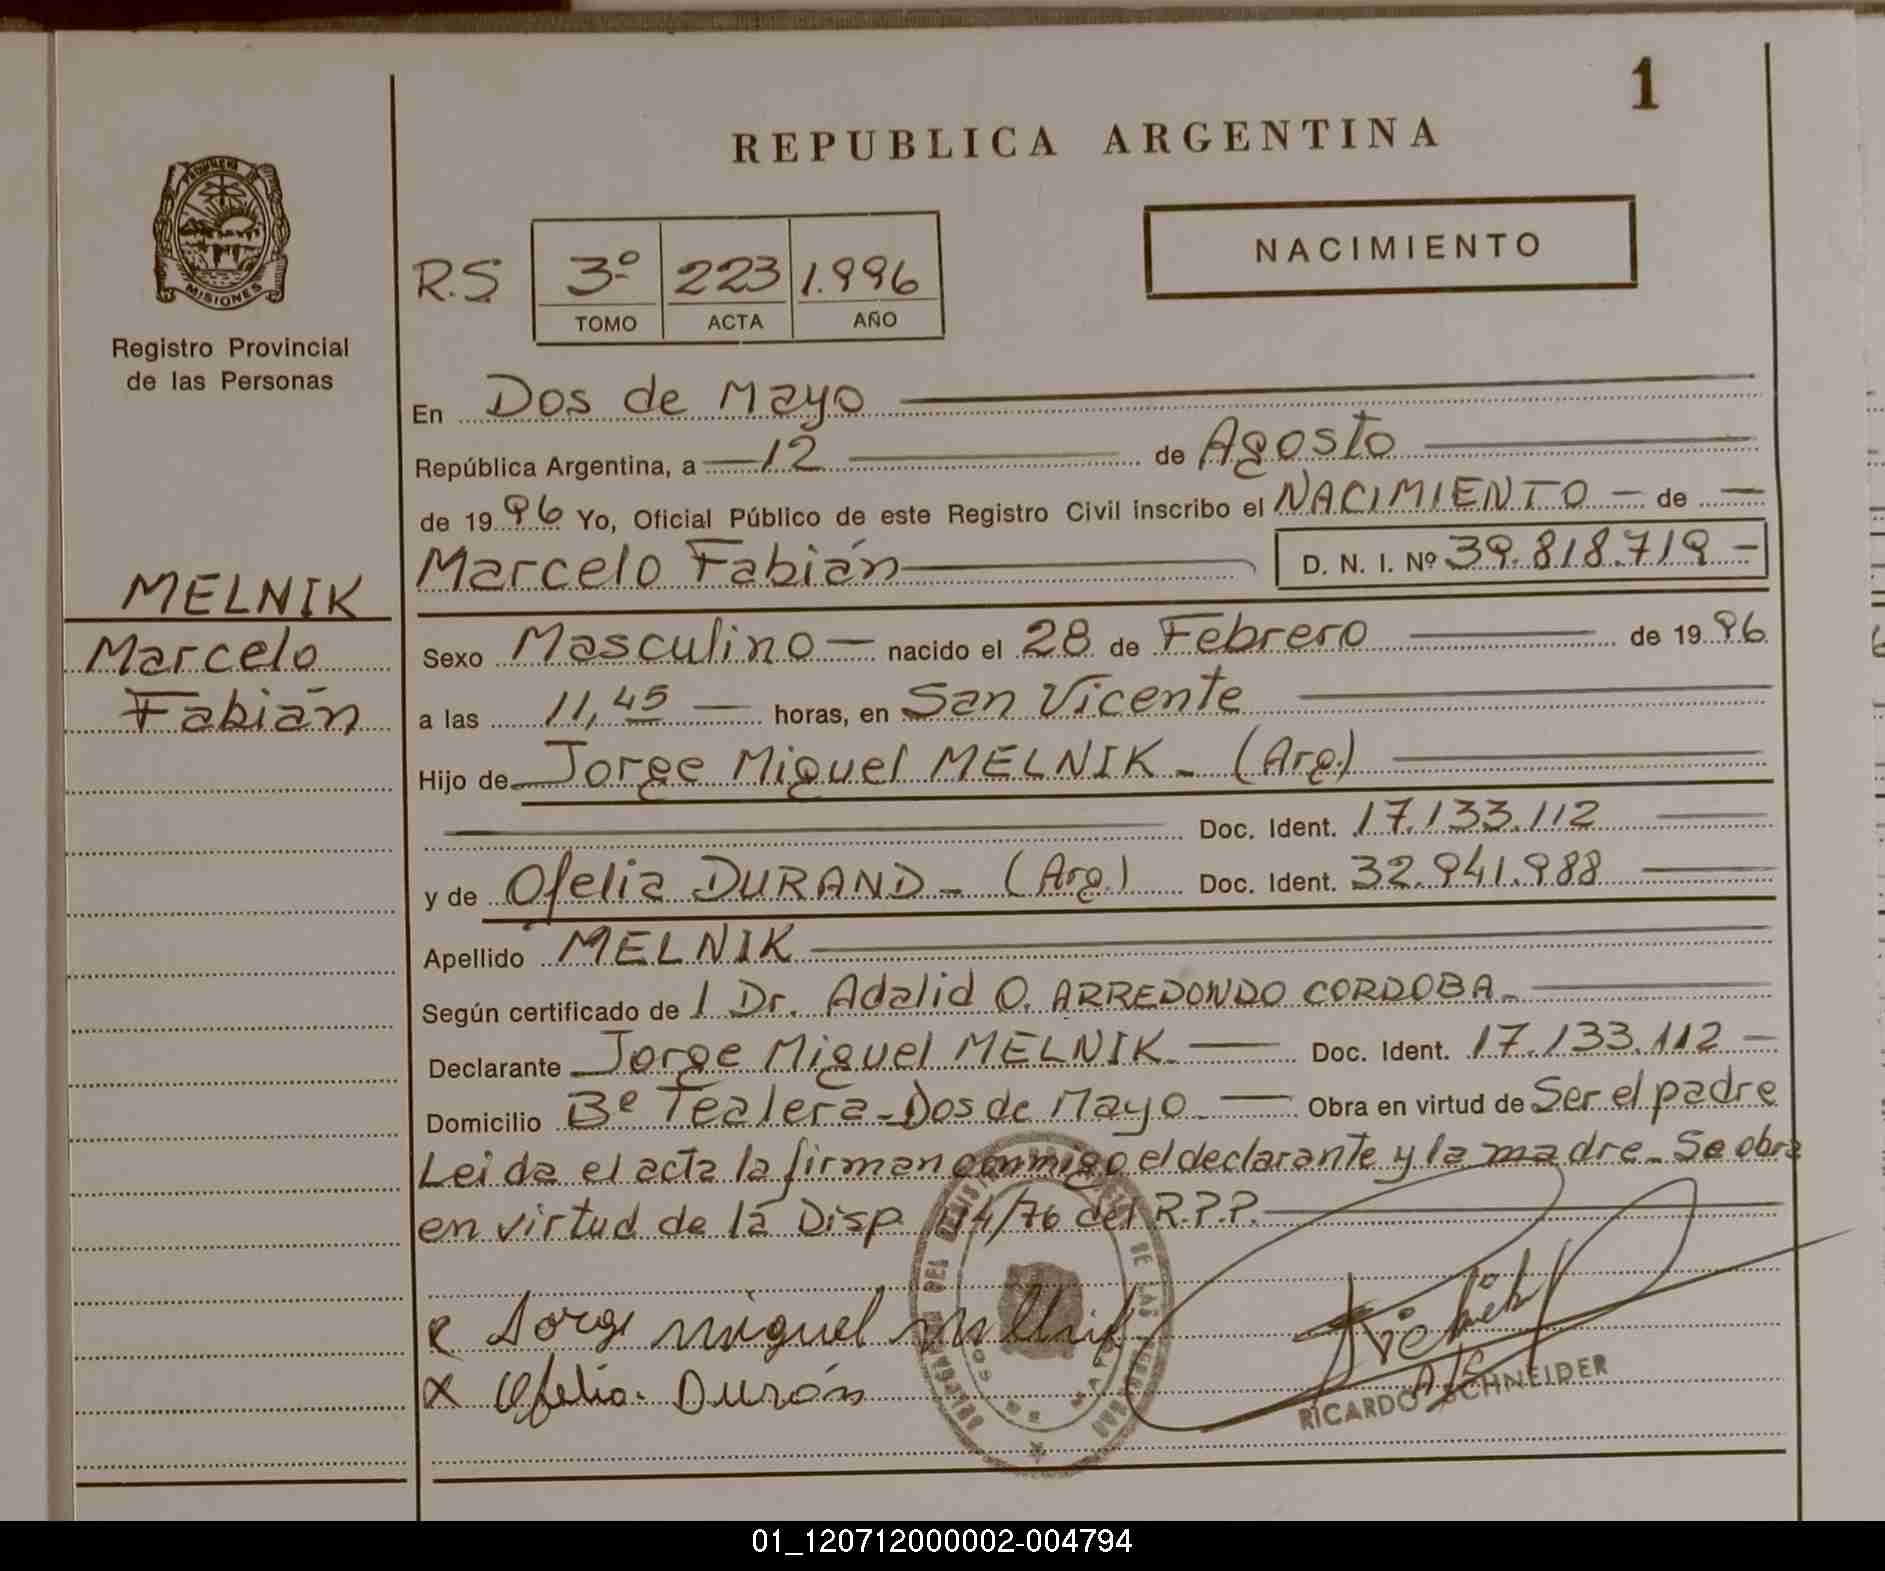 1
REPUBLICA ARGENTINA
PROVINCIA DE
MISIONES
Registro Provincial
de las Personas
R.S 3º 223 1.996
TOMO ACTA AÑO
NACIMIENTO
En Dos de Mayo
República Argentina, a 12 de Agosto
de 1996 Yo, Oficial Público de este Registro Civil inscribo el NACIMIENTO - de -
Marcelo Fabián D. N. I. Nº 39.818.719 -
MELNIK
Marcelo
Fabián
Sexo Masculino - nacido el 28 de Febrero de 1996
a las 11,45 horas, en San Vicente
Hijo de Jorge Miguel MELNIK - (Arg.)
Doc. Ident. 17.133.112
y de Ofelia DURAND - (Arg.) Doc. Ident. 32.941.988
Apellido MELNIK
Según certificado de 1 Dr. Adalid O. ARREDONDO CORDOBA -
Declarante Jorge Miguel MELNIK - Doc. Ident. 17.133.112 -
Domicilio Bº Tealera - Dos de Mayo - Obra en virtud de Ser el padre
Leida el acta la firman conmigo el declarante y la madre - Se obra
en virtud de la Disp. 14/76 del R.P.P.
Jorge miguel melnik
x Ofelia. Durán
RICARDO SCHNEIDER
01_120712000002-004794